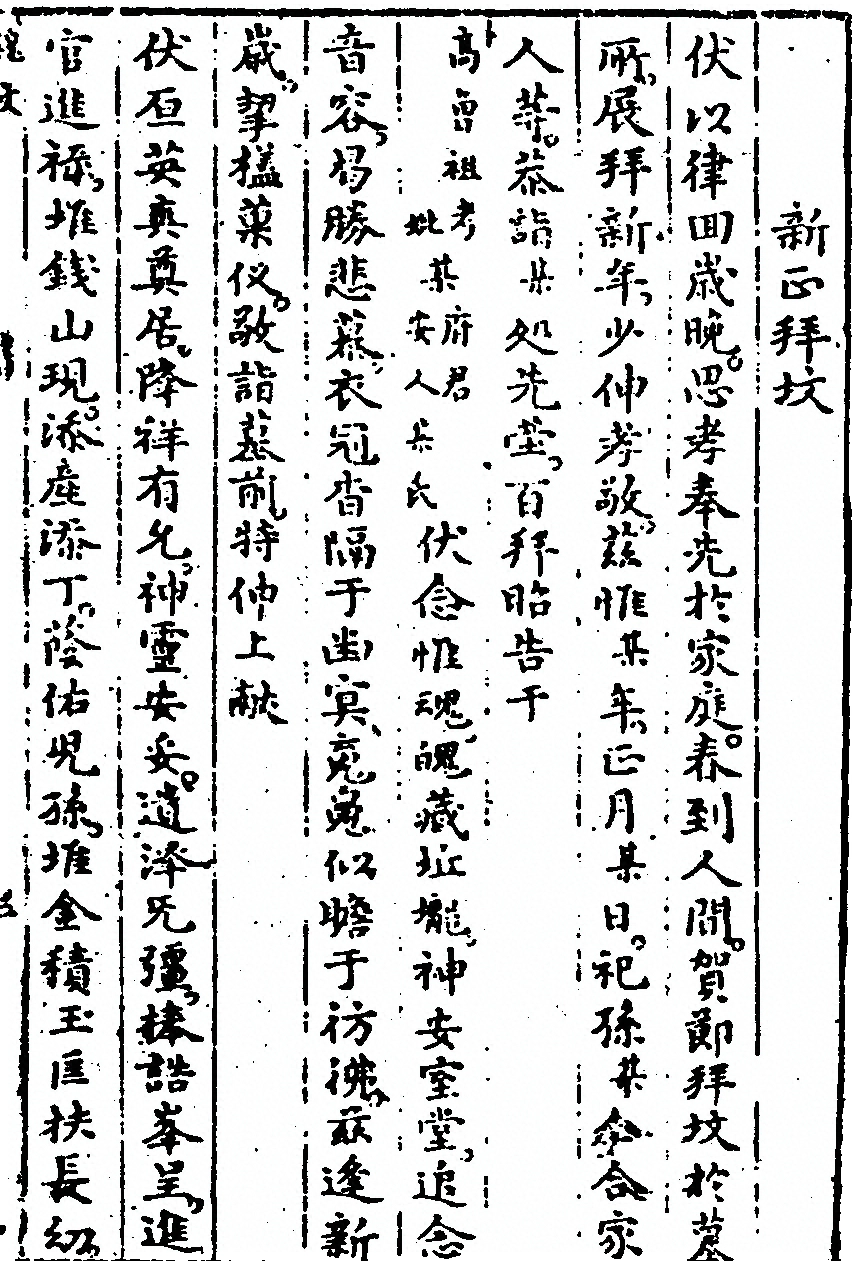 新正拜坟
伏以律回歲晚思孝奉先於家庭春到人間賀節拜坟於墓
所展拜新年少伸孝敬兹惟某年正月某日祀孫某仝合家
人等恭詣某处先塋百拜昭告于
高曾祖考某府君
妣某安人某氏伏念惟魂魄藏坵壠神安室堂追念
音容曷勝悲慕衣冠杳隔于幽冥䰟䰟似瞻于彷彿兹逢新
歲挈榼菓仪敬詣墓前特伸上献
伏亙英真奠居降祥有允神靈安妥遺泽旡彊捧誥峯呈進
官進禄堆錢山現添産添丁蔭佑児孫堆金積玉匡扶長幼